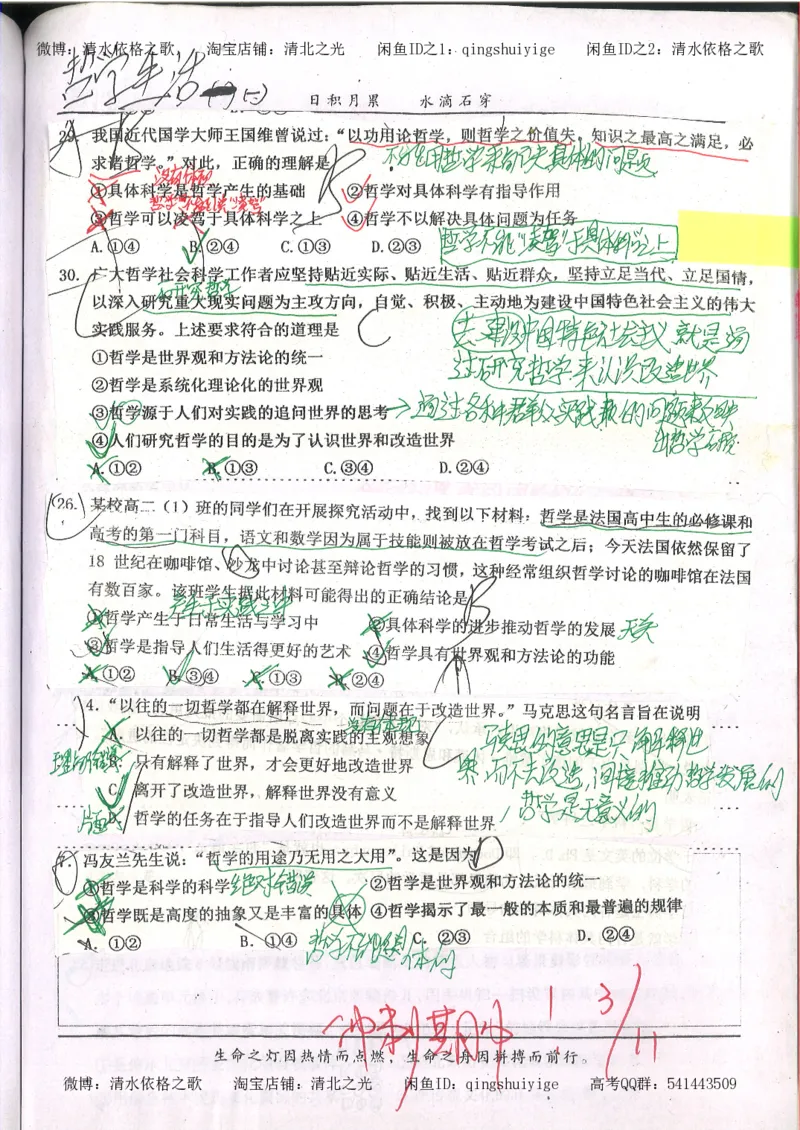 微博：清水依格之歌， 淘宝店铺：清北之光 闲鱼ID之1：qingshuiyige 闲鱼ID之2：清水依格之歌
哲学生活
日积月累 水滴石穿
29. 我国近代国学大师王国维曾说过：“以功用论哲学，则哲学之价值失。知识之最高之满足，必
求诸哲学。”对此，正确的理解是
B
①具体科学是哲学产生的基础 ②哲学对具体科学有指导作用
③哲学可以凌驾于具体科学之上 ④哲学不以解决具体问题为任务
A.①④ B.②④ C.①③ D.②③
哲学不能“凌驾”于具体科学之上
30. 广大哲学社会科学工作者应坚持贴近实际、贴近生活、贴近群众，坚持立足当代、立足国情，
以深入研究重大现实问题为主攻方向，自觉、积极、主动地为建设中国特色社会主义的伟大
实践服务。上述要求符合的道理是
C
去建设中国特色社会主义 就是通
过研究哲学来认识改造世界
①哲学是世界观和方法论的统一
②哲学是系统化理论化的世界观
③哲学源于人们对实践的追问世界的思考
④人们研究哲学的目的是为了认识世界和改造世界
A.①② B.①③ C.③④ D.②④
26. 某校高二（1）班的同学们在开展探究活动中，找到以下材料：哲学是法国高中生的必修课和
高考的第一门科目，语文和数学因为属于技能则被放在哲学考试之后；今天法国依然保留了
18 世纪在咖啡馆、沙龙中讨论甚至辩论哲学的习惯，这种经常组织哲学讨论的咖啡馆在法国
有数百家。该班学生据此材料可能得出的正确结论是
B
产生于实践之中
①哲学产生于日常生活与学习中 ②具体科学的进步推动哲学的发展 无关
③哲学是指导人们生活得更好的艺术 ④哲学具有世界观和方法论的功能
A.①② B.③④ C.①③ D.②④
4. “以往的一切哲学都在解释世界，而问题在于改造世界。”马克思这句名言旨在说明
C
A. 以往的一切哲学都是脱离实践的主观想象
B. 只有解释了世界，才会更好地改造世界
C. 离开了改造世界，解释世界没有意义
D. 哲学的任务在于指导人们改造世界而不是解释世界
马克思的意思是只解释世
界，而不去改造
哲学是无意义的
7. 冯友兰先生说：“哲学的用途乃无用之大用”。这是因为
D
①哲学是科学的科学 绝对错误 ②哲学是世界观和方法论的统一
③哲学既是高度的抽象又是丰富的具体 ④哲学揭示了最一般的本质和最普遍的规律
A. ①② B. ①④ C. ②③ D. ②④
冲刺期中！
3/11
生命之灯因热情而点燃，生命之舟因拼搏而前行。
微博：清水依格之歌 淘宝店铺：清北之光 闲鱼ID：qingshuiyige 高考QQ群：541443509